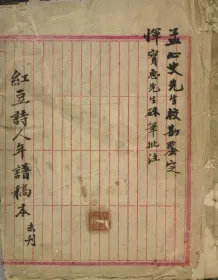 孟心史先生校勘鉴定
惲寶惠先生硃筆批注
紅豆詩人年譜稿本 未刊